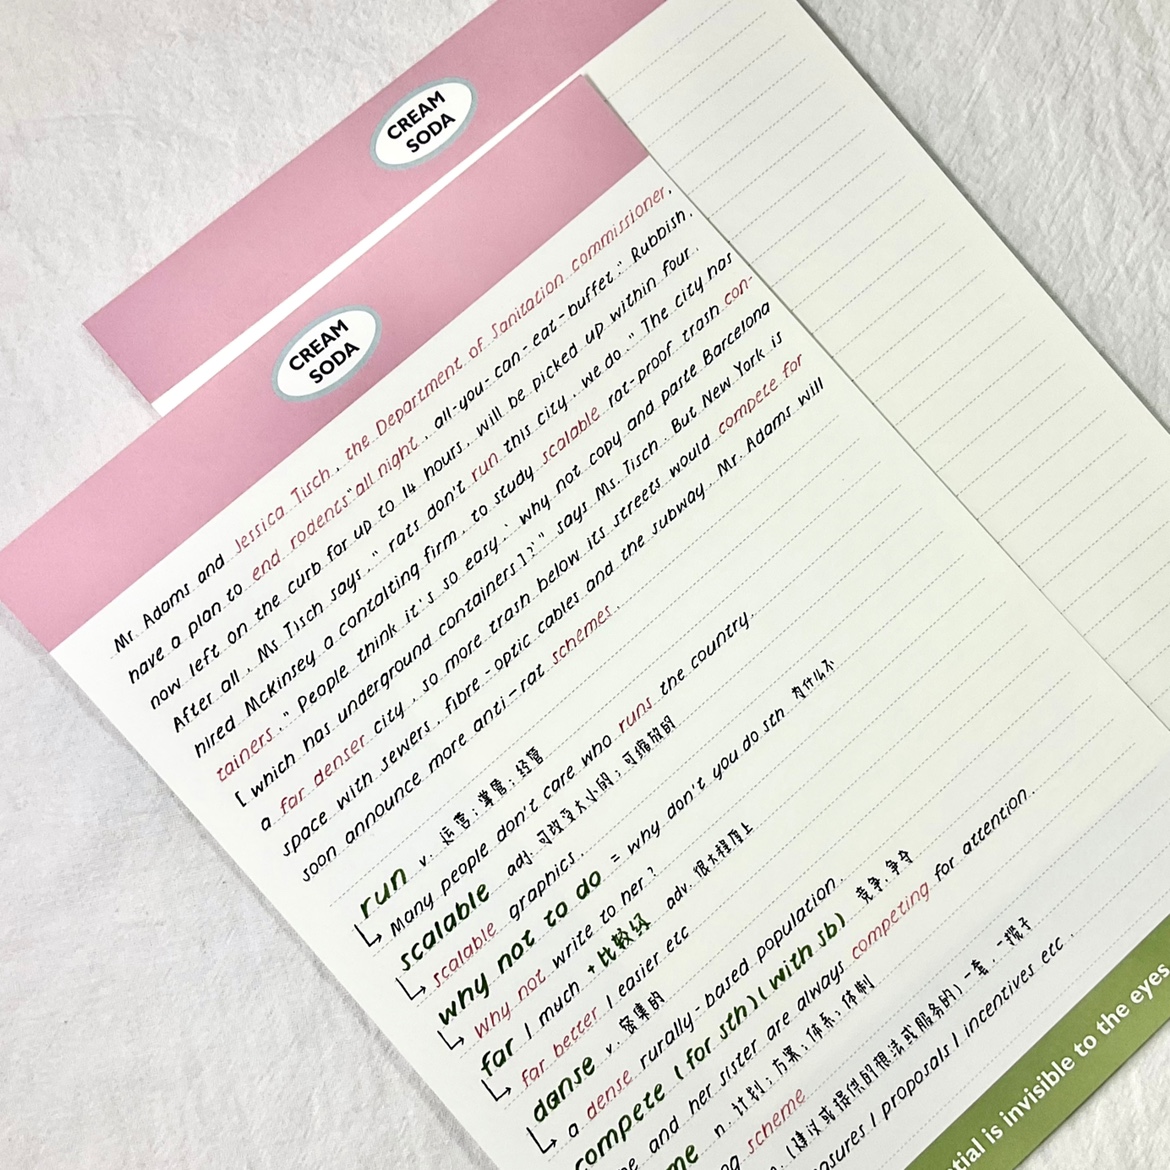 CREAM
SODA
CREAM
SODA
Mr. Adams and Jessica Tisch, the Department of Sanitation commissioner,
have a plan to end rodents' "all night, all-you-can-eat-buffet." Rubbish,
now left on the curb for up to 14 hours, will be picked up within four.
After all, Ms Tisch says, "rats don't run this city, we do." The city has
hired McKinsey a contalting firm, to study scalable rat-proof trash con-
tainers. "People think it's so easy, 'why not copy and paste Barcelona
[which has underground containers]?'" says Ms. Tisch. But New York is
a far denser city, so more trash below its streets would compete for
space with sewers, fibre-optic cables and the subway. Mr. Adams will
soon announce more anti-rat schemes.
run v. 运营；掌管；经营
↳ Many people don't care who runs the country.
scalable adj. 可改变大小的；可缩放的
↳ scalable graphics.
why not to do = why don't you do sth 为什么不
↳ Why not write to her?
far / much +比较级 adv. 很大程度上
↳ far better / easier etc
danse v. 密集的
↳ a dense rurally-based population.
compete (for sth)(with sb) 竞争，争夺
and her sister are always competing for attention.
n. 计划；方案；体系；体制
scheme
(建议或提供的想法或服务的)一套，一揽子
proposals / incentives etc.
is invisible to the eyes